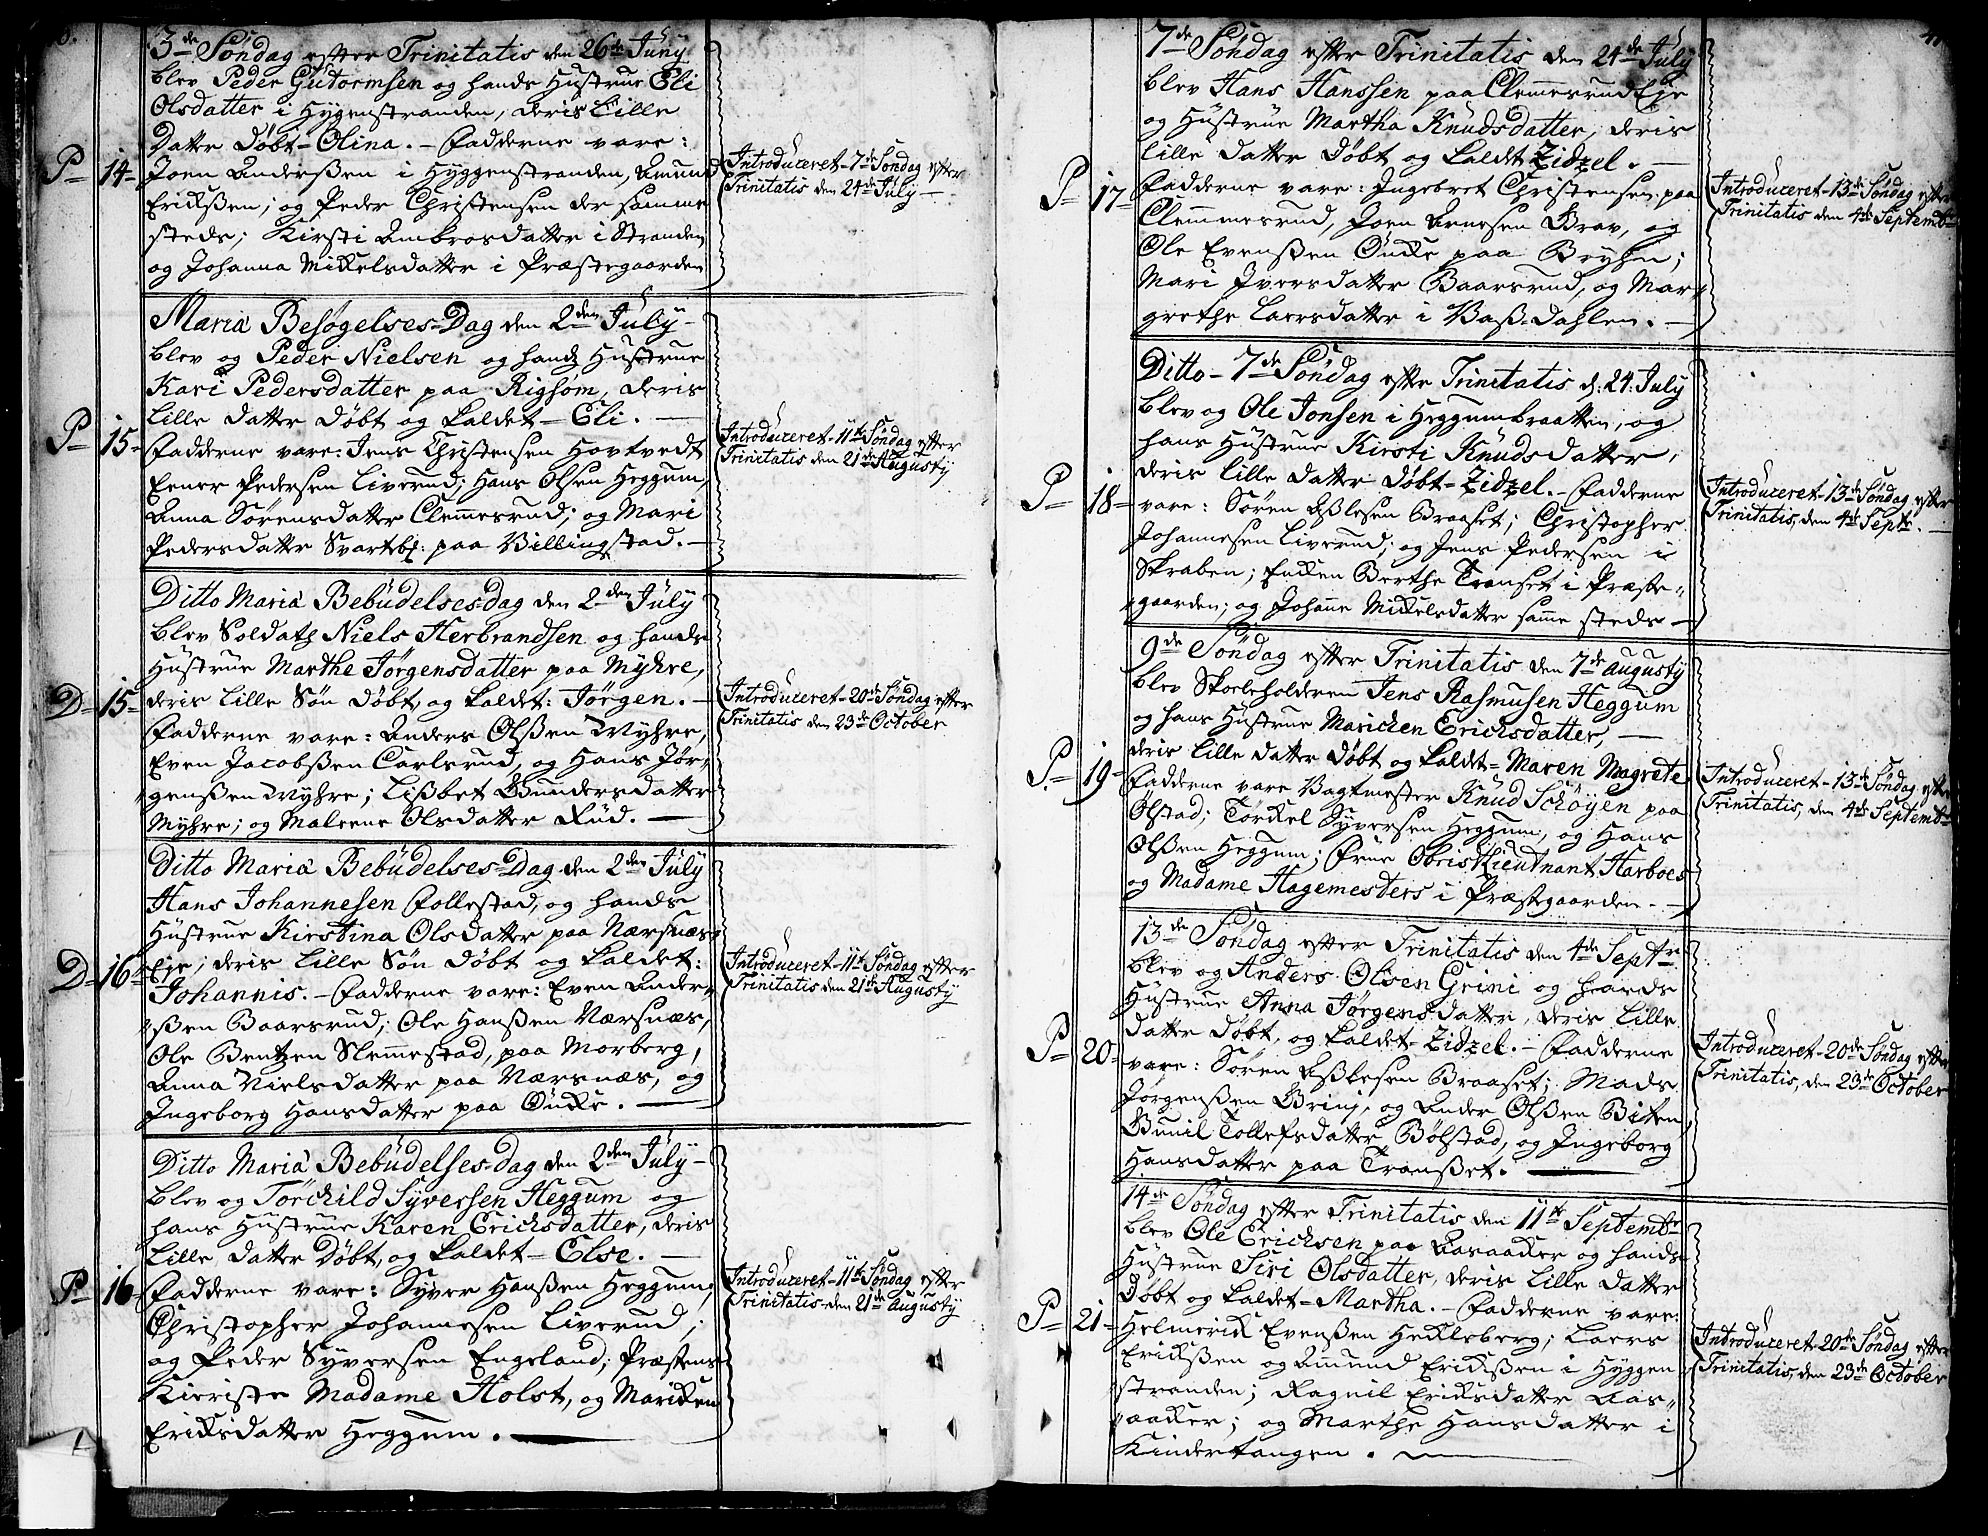 3de Søndag efter Trinitatis den 26de Juny
blev Peder Gutormsen og hands Hustrue Eli
Olsdatter i Hygenstranden, deris lille
Datter døbt - Olina. - Fadderne vare:
P 14 Joen Anderssen i Hyggenstranden, Amund
Erickssen; og Peder Christensen der samme
steds; Kirsti Ambrosdatter i Stranden
og Johanna Mickelsdatter i Præstegaarden
Introduceret - 7de Søndag efter
Trinitatis den 24de July -
Maria Besøgelses-Dag den 2den July -
blev og Peder Nielsen og hands Hustrue
Kari Pedersdatter paa Rigsøm, deris
lille datter døbt og kaldet - Eli. -
P 15 Fadderne vare: Jens Christensen Hovtvedt
Ener Pedersen Liverud; Hans Olsen Heggum,
Anna Sørensdatter Clemmesrud; og Mari
Pedersdatter paa Billingstad. -
Introduceret - 11te Søndag efter
Trinitatis den 21de Augusty
Ditto Maria Bebudelses-dag den 2den July
blev Soldat Niels Herbrandsen og hands
Hustrue Marthe Jørgensdatter paa Myhre,
D 15 deris lille Søn døbt, og kaldet: Jørgen. -
Fadderne vare: Anders Olssen Myhre,
Even Jacobssen Carlsrud, og Hans Jør-
genssen Myhre; Lisbet Gundersdatter
Myhre; og Maleene Olsdatter Rud. -
Introduceret - 20de Søndag efter
Trinitatis den 23de October
Ditto Maria Bebudelses-Dag den 2den July
Hans Johannesen Follestad, og hands
Hustrue Kirstina Olsdatter paa Nærsnæs
D 16 Eje; deris lille Søn døbt og kaldet:
Johannis. - Fadderne vare: Even Ander-
ssen Baarsrud; Ole Hanssen Nærsnæs,
Ole Bentzen Slemmestad, paa Morberg,
Anna Nielsdatter paa Nærsnæs, og
Ingeborg Hansdatter paa Ødcke. -
Introduceret - 11te Søndag efter
Trinitatis den 21de Augusty
Ditto Maria Bebudelses-dag den 2den July -
blev og Torchild Syversen Heggum og
hans Hustrue Karen Erichsdatter, deris
lille datter døbt, og kaldet - Else. -
P 16 Fadderne vare: Syver Hanssen Heggum;
Christopher Johannesen Liverud;
og Peder Syversen Engeland; Præstens
Kieriste Madame Holst, og Maricken
Ericksdatter Heggum.
Introduceret - 11te Søndag efter
Trinitatis - den 21de Augusty
7de Søndag efter Trinitatis den 24de July
blev Hans Hanssen paa Clemmesrud Eje
og Hustrue Martha Knudsdatter, deris
lille datter døbt og kaldet Zidzel. -
P 17 Fadderne vare: Ingebret Christensen paa
Clemmesrud, Joen Arnesen Brav, og
Ole Evenssen Ødcke paa Bryhn;
Mari Iversdatter Baarsrud, og Mar-
grethe Laersdatter i Bass-dahlen. -
Introduceret - 13de Søndag efter
Trinitatis den 4de Septemb
Ditto - 7de Søndag efter Trinitatis d: 24. July
blev og Ole Jonsen i Heggumbraatten, og
hans Hustrue Kirsti Knudsdatter,
deris lille datter døbt - Zidzel. - Fadderne
P 18 vare: Søren Aslesen Braaset; Christopher
Johannesen Liverud; og Jens Pedersen i
Skraben; Encken Berthe Transet i Præste-
gaarden; og Johanne Mickelsdatter samme steds -
Introduceret - 13de Søndag efter
Trinitatis, den 4de Septr.
9de Søndag efter Trinitatis den 7de Augusty
blev Skoleholderen Jens Rasmusen Heggum
og hans Hustrue Marichen Erichsdatter, -
deris lille datter døbt og kaldet - Maren Magrete
P 19 Fadderne vare Vagtmester Knud Schøyen paa
Ølstad; Torckel Syversen Heggum, og Hans
Olssen Heggum; Frue Obristlieutnant Harboes
og Madame Hagemesters i Præstegaarden. -
Introduceret - 13de Søndag efter
Trinitatis, den 4de Septemb
13de Søndag efter Trinitatis den 4de Septr
blev og Anders Olsen Grini og hands
Hustrue Anna Jørgensdatter, deris lille
datter døbt, og kaldet - Zidzel. - Fadderne
P 20 vare: Søren Aslesen Braaset; Mads
Jørgenssen Grinj, og Ander Olssen Biten
Gunil Tollefsdatter Bølstad, og Ingeborg
Hansdatter paa Transset.
Introduceret - 20de Søndag efter
Trinitatis, den 23de October
14de Søndag efter Trinitatis den 11te Septembr
blev Ole Erichsen paa Aasaacker og hands
Hustrue Siri Olsdatter, deris lille datter
døbt og kaldet - Martha. - Fadderne vare:
P 21 Helmerick Evenssen Heckleberg; Laers
Erickssen og Amund Erickssen i Hyggen
stranden; Ragnil Ericksdatter Aas-
aacker; og Marthe Hansdatter i
Kindertangen.
Introduceret 20de Søndag efter
Trinitatis, den 23de October